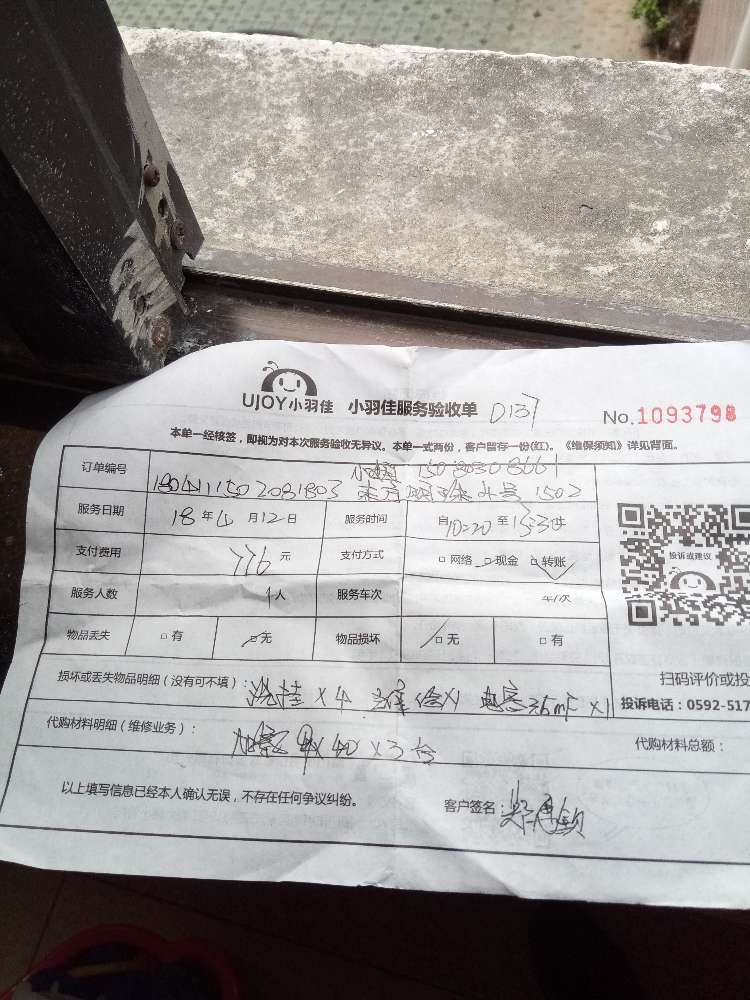 UJOY小羽佳 小羽佳服务验收单 D137
No.1093798
本单一经核签，即视为对本次服务验收无异议。本单一式两份，客户留存一份(红)。《维保须知》详见背面。
订单编号 1804111502081803 1502
服务日期 18年4月12日 服务时间 自10:20至
支付费用 776元 支付方式 □网络 □现金 □转账
服务人数 1人 服务车次 车/次
物品丢失 □有 □无 物品损坏 □无 □有
投诉或建议
扫码评价或投
投诉电话：0592-517
损坏或丢失物品明细（没有可不填）：洗挂×4 ×1 电容35mF×1
代购材料明细（维修业务）： 40×3台
代购材料总额：
以上填写信息已经本人确认无误，不存在任何争议纠纷。
客户签名：